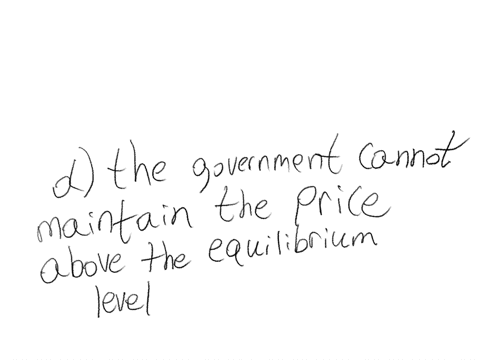 d) the government cannot
maintain the price
above the equilibrium
level